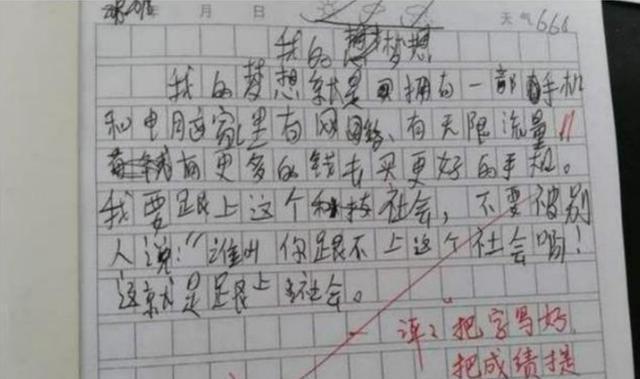 年 月 日 天气 666
我的梦想
我的梦想就是拥有一部手机
和电脑这家里有网络、有无限流量
有更多的钱去买更好的手机。
我要跟上这个科技社会，不要被别
人说："谁叫你跟不上这个社会吗！
这就是跟上社会。
评：把字写好
把成绩提